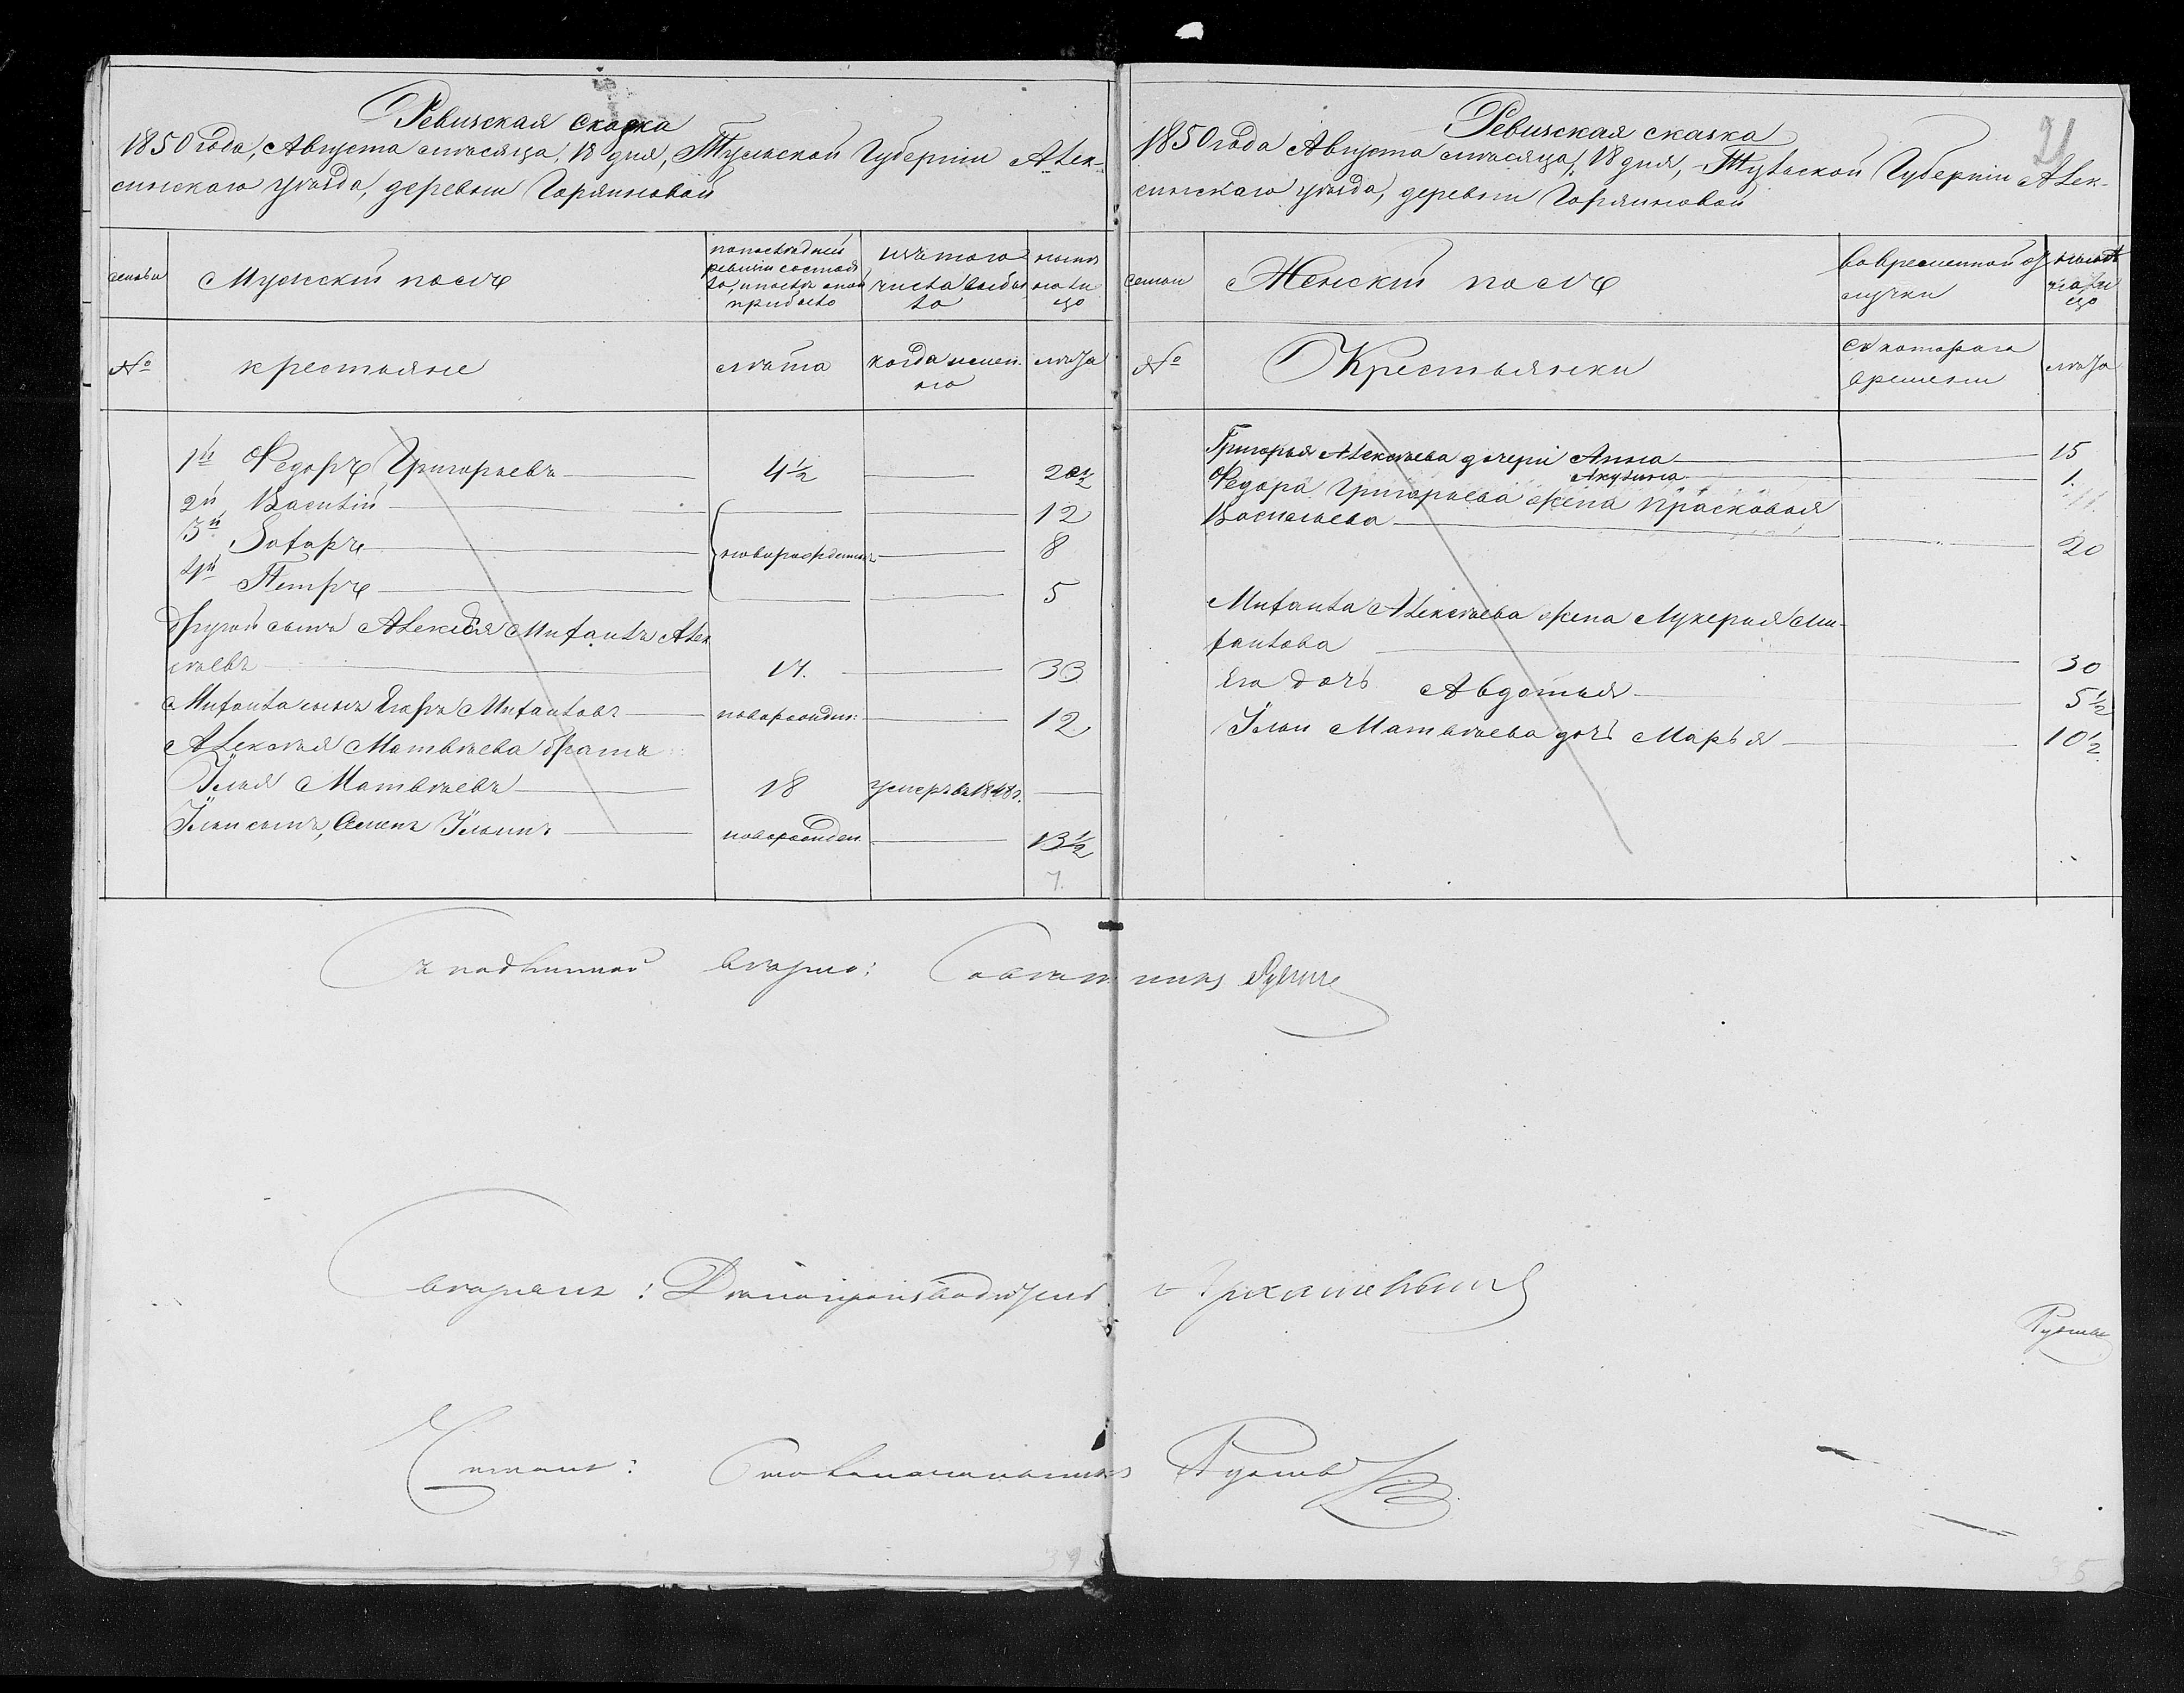 Ревизская сказка
1850 года, Августа месяца, 18 дня, Тульской Губернии Алек-
синскаго уезда, деревни Горяиновой
семьи
Мужский полъ
по последней
ревизии состоя
ло, и после оной
прибыло
изъ того
числа выбы
ло
ныне
на ли
цо
№
крестьяне
лета
когда имен
но
лета
1й Федоръ Григорьевъ 4½ 20½
2й Василий 12
3й Захаръ новорожденныя 8
4й Петръ 5
другой сынъ Алексея Михаилъ Алек
сеевъ 17. 33
Михаила сынъ Егоръ Михаиловъ новорожден: 12
Алексея Матвеева братъ
Илья Матвеевъ 18 умеръ въ 1848 г.
Ильи сынъ, Семенъ Ильинъ новорожден 13½
7.
Съ подлинной верно:
Сверялъ:
Читалъ: Столоначальникъ
21
Ревизская сказка
1850 года Августа месяца, 18 дня, Тульской Губернии Алек-
синскаго уезда, деревни Горяиновой
семьи
Женский полъ
во временной от
лучки
ныне
на ли
цо
№
Крестьянки
съ котораго
времени
лета
Григорья Алексеева дочери Анна 15
Акулина 1.
Федора Григорьева жена Прасковья
Васильева 20
Михаила Алексеева жена Лукерья Ми-
хаилова 30
Его дочь Авдотья 5½
Ильи Матвеева дочь Марья 10½
35